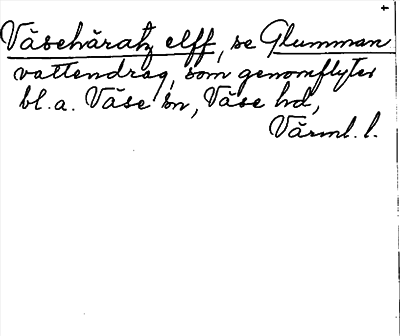 Väsehäratz elff, se Glumman
vattendrag, som genomflyter
bl. a. Väse sn, Väse hd,
Värml. l.